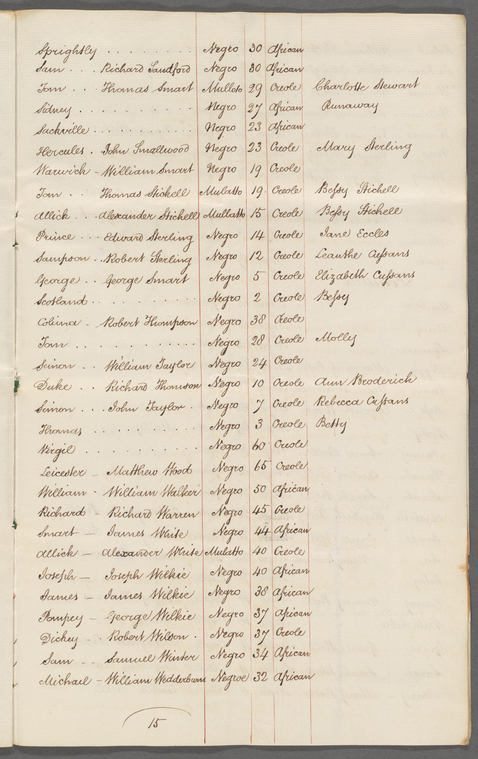 Sprightly . . . . . . . . Negro 30 African
Sam . . . Richard Sandford Negro 30 African
Tom . . Thomas Smart Mullato 29 Creole Charlotte Stewart
Sidney . . . . . . . . . . Negro 27 African Runaway
Sackville . . . . . . . . . Negro 23 African
Hercules . John Smallwood Negro 23 Creole Mary Sterling
Warwick - William Smart Negro 19 Creole
Tom . . Thomas Stichell Mulatto 19 Creole Bessy Stichell
Allick . . Alexander Stichell Mullatto 15 Creole Bessy Stichell
Prince . . Edward Sterling Negro 14 Creole Jane Eccles
Sampson . . Robert Sterling Negro 12 Creole Leanthe
George . . George Smart Negro 5 Creole Elizabeth
Scotland . . . . . . . . . Negro 2 Creole Bessy
Robert Thompson Negro 38 Creole
Tom . . . . . . . . . . Negro 28 Creole Molley
Simon . . William Taylor Negro 24 Creole
Duke . . Richard Thomson Negro 10 Creole Ann Broderick
Simon . . . John Taylor . Negro 7 Creole Rebecca
Thomas . . . . . . . . . Negro 3 Creole Betty
Virgil . . . . . . . . . . Negro 60 Creole
Leicester - Matthew Wood Negro 65 Creole
William . William Walker Negro 50 African
Richard - Richard Warren Negro 45 Creole
Smart - James Waite Negro 44 African
Allick - Alexander Waite Mulatto 40 Creole
Joseph - Joseph Wilkie Negro 40 African
James - James Wilkie Negro 38 African
Pompey - George Wilkie Negro 37 African
Dickey - Robert Wilson . Negro 37 Creole
Sam . . . Samuel Winter Negro 34 African
Michael - William Wedderburn Negroe 32 African
15